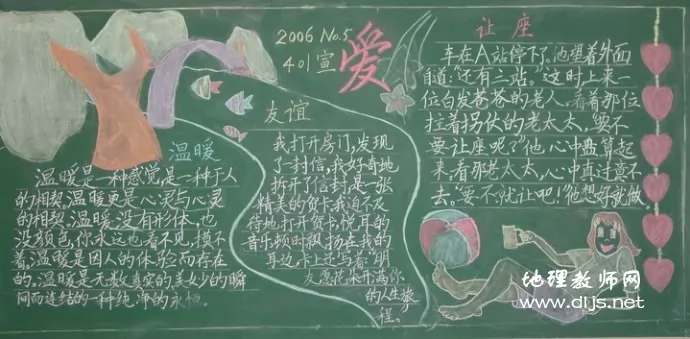 2006 No.5
401宣
爱
温暖
温暖是一种感觉,是一种于人
的相契,温暖更是心灵与心灵
的相契。温暖没有形体,也
没颜色,你永远也看不见,摸不
着,温暖是因人的体验而存在
的。温暖是无数真实的美妙的瞬
间而连结的一种纯净的永恒。
友谊
我打开房门,发现
了一封信,我好奇地
拆开了信封,是一张
精美的贺卡,我迫不及
待地打开贺卡,悦耳的
音乐顿时飘扬在我的
耳边,卡上还写着:“朋
友愿花朵开满你
的人生旅
程。
让座
车在A站停下了。他望着外面
自道:“还有三站。”这时上来一
位白发苍苍的老人。看着那位
拄着拐杖的老太太,“要不
要让座呢?”他,心中盘算起
来,看那老太太,心中真过意不
去。“要不就让吧!”他想好就做。
地理教师网
www.dljs.net